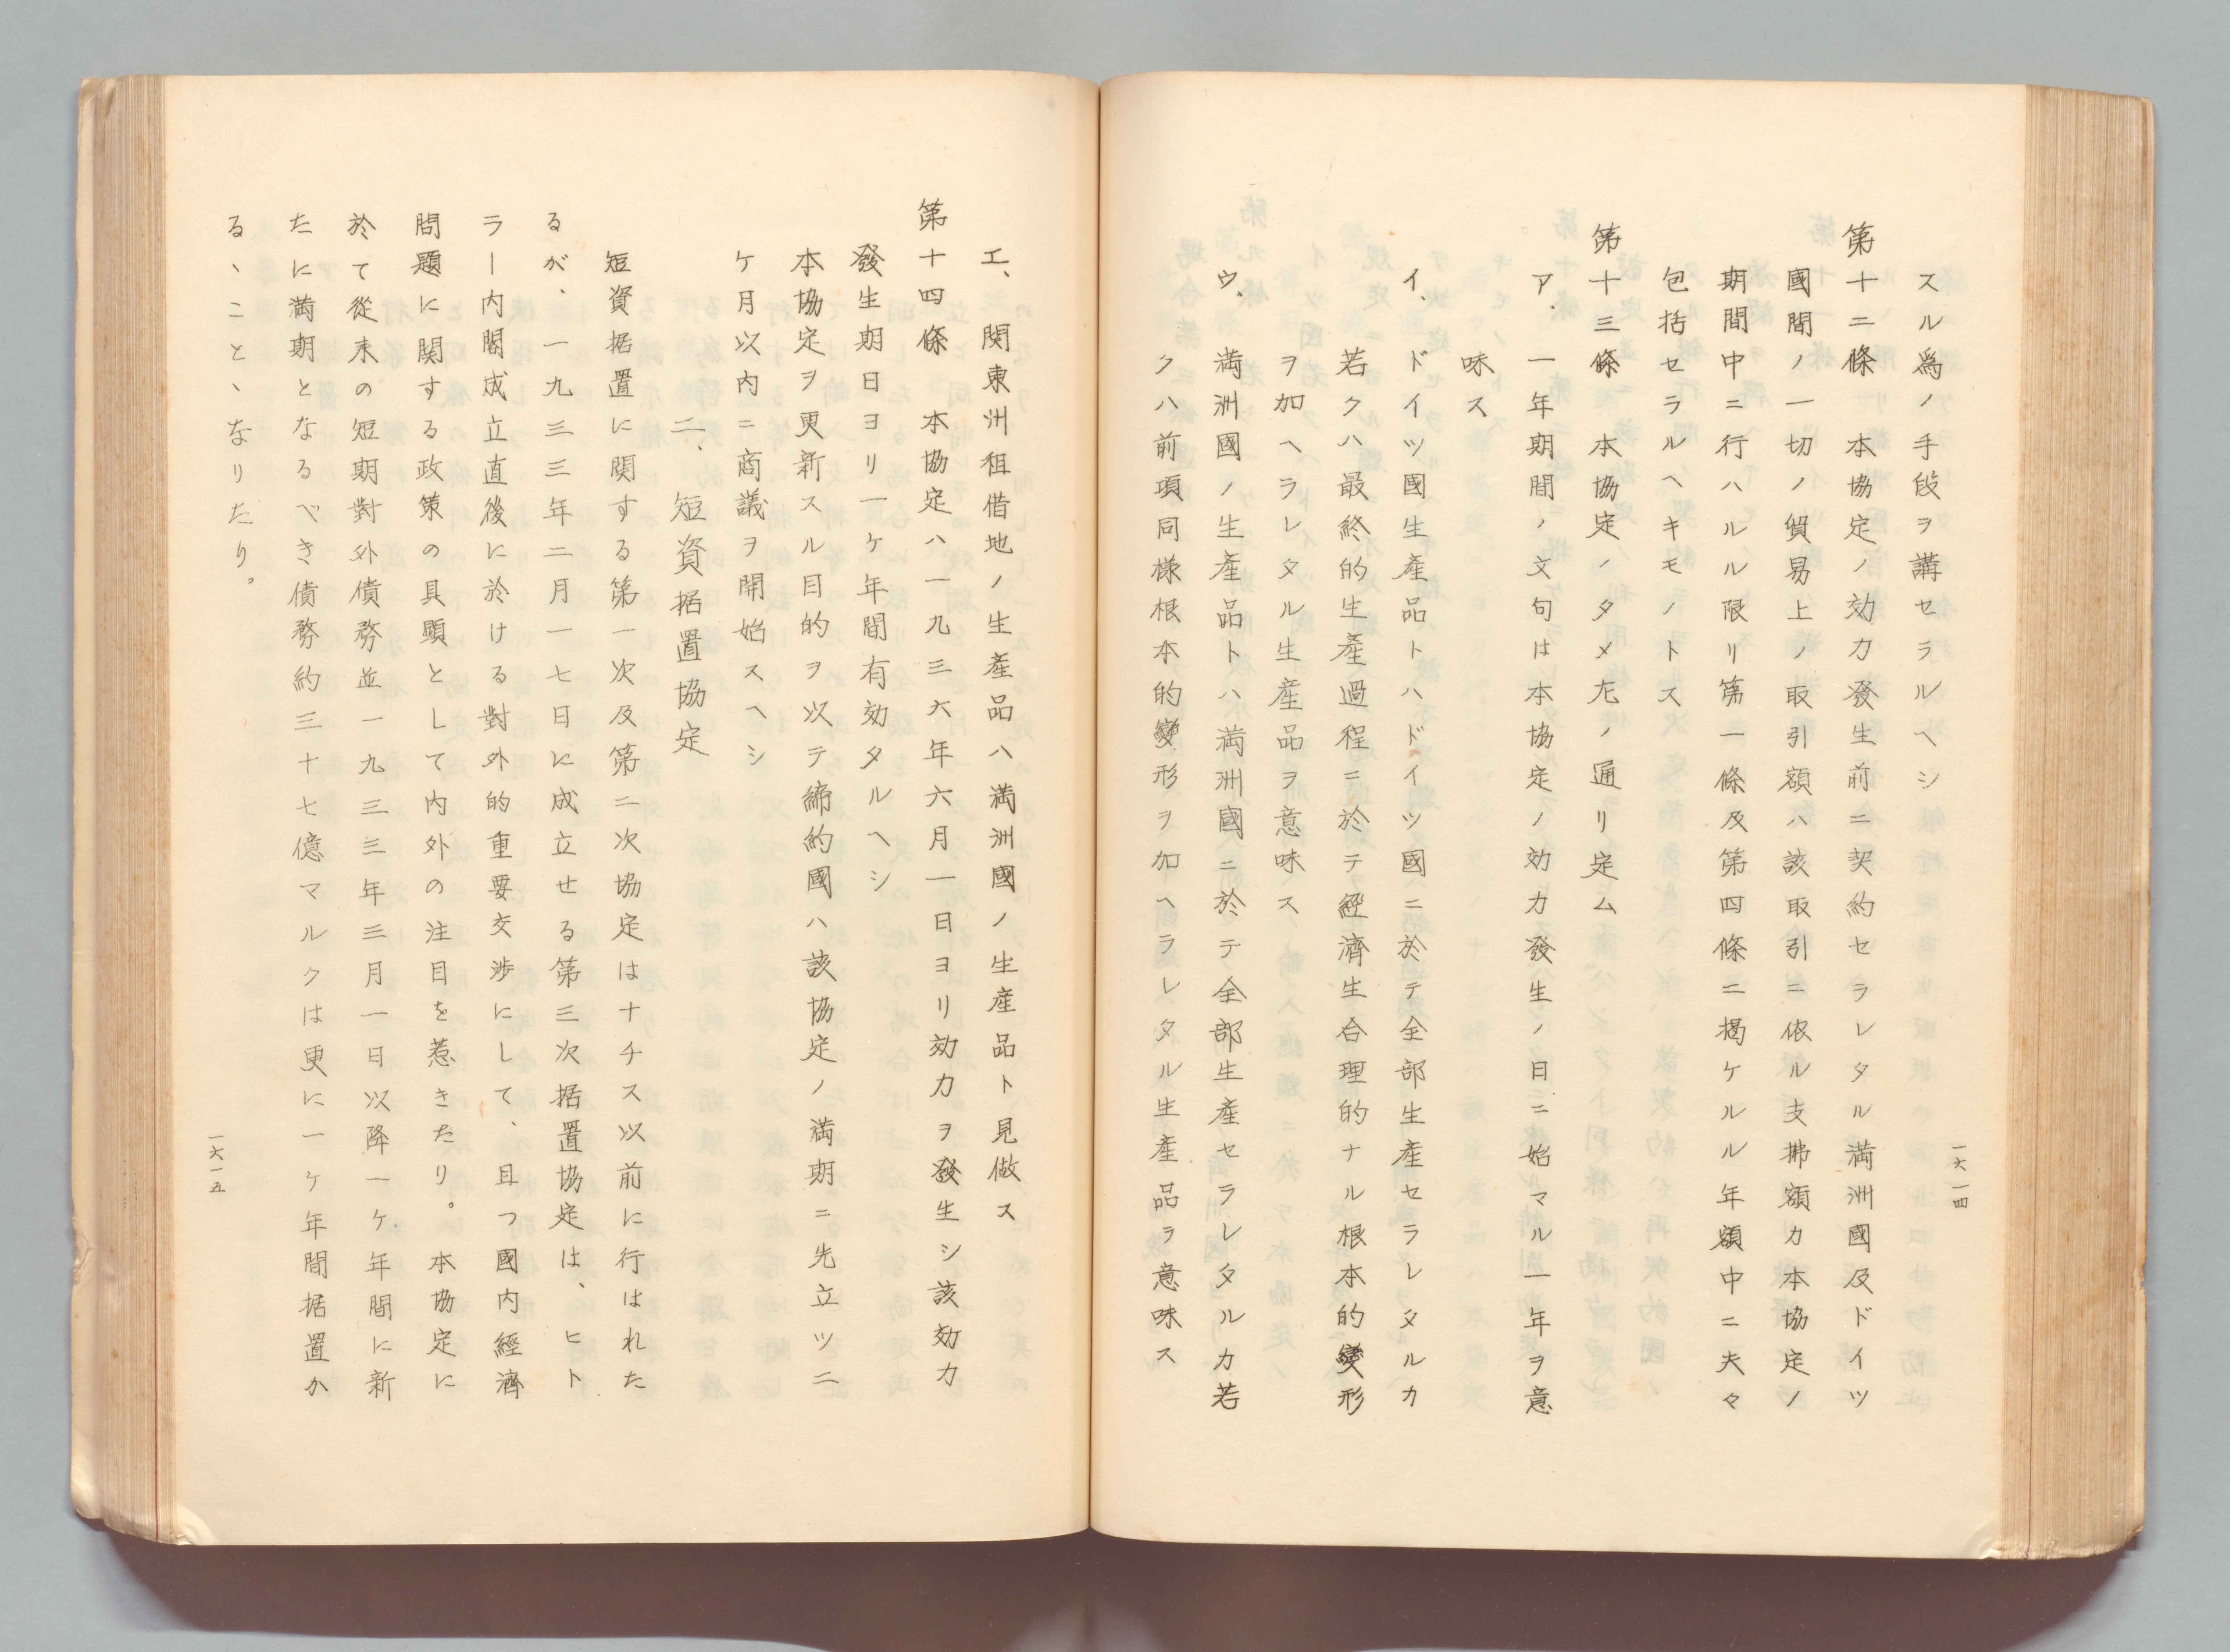 スル爲ノ手段ヲ講セラルヘシ
第十二條　本協定ノ効力發生前ニ契約セラレタル満洲國及ドイツ
國間ノ一切ノ貿易上ノ取引額ハ該取引ニ依ル支拂額カ本協定ノ
期間中ニ行ハルル限リ第一條及第四條ニ揭ケルル年額中ニ夫々
包括セラルヘキモノトス
第十三條　本協定ノタメ左ノ通リ定ム
ア、一年期間ノ文句は本協定ノ効力發生ノ日ニ始マル一年ヲ意
味ス
イ、ドイツ國生產品トハドイツ國ニ於テ全部生產セラレタルカ
若クハ最終的生產過程ニ於テ經濟生合理的ナル根本的變形
ヲ加ヘラレタル生産品ヲ意味ス
ウ、満洲國ノ生產品トハ満洲國ニ於テ全部生產セラレタルカ若
クハ前項同様根本的變形ヲ加ヘラレタル生產品ヲ意味ス
一六一四
エ、関東洲租借地ノ生産品ハ満洲國ノ生産品ト見做ス
第十四條　本協定ハ一九三六年六月一日ヨリ効力ヲ發生シ該効力
發生期日ヨリ一ケ年間有効タルヘシ
本協定ヲ更新スル目的ヲ以テ締約國ハ該協定ノ満期ニ先立ツ二
ケ月以内ニ商議ヲ開始スヘシ
二、短資据置協定
短資据置に関する第一次及第二次協定はナチス以前に行はれた
るが、一九三三年二月一七日に成立せる第三次据置協定は、ヒト
ラー内閣成立直後に於ける對外的重要交渉にして、且つ國内經濟
問題に関する政策の具顕として内外の注目を惹きたり。本協定に
於て從来の短期對外債務並一九三三年三月一日以降一ケ年間に新
たに満期となるべき債務約三十七億マルクは更に一ケ年間据置か
るゝことゝなりたり。
一六一五